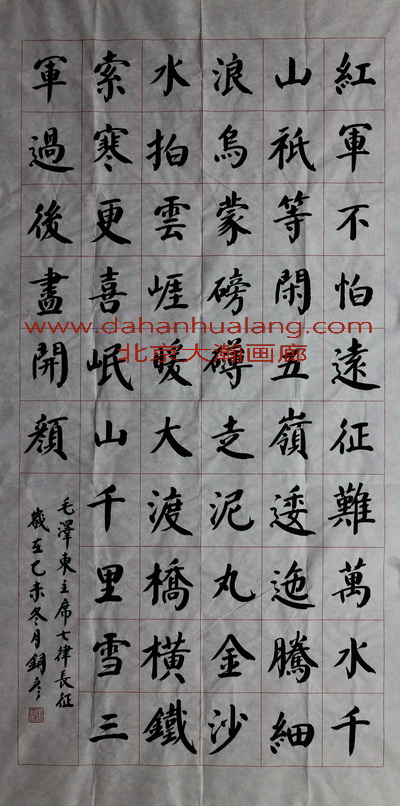 紅軍不怕遠征難萬水千
山祇等閑五嶺逶迤騰細
浪烏蒙磅礴走泥丸金沙
水拍雲崕暖大渡橋橫鐵
索寒更喜岷山千里雪三
軍過後盡開顏
毛澤東主席七律長征
歲在乙未冬月
www.dahanhualang.com
北京大瀚画廊